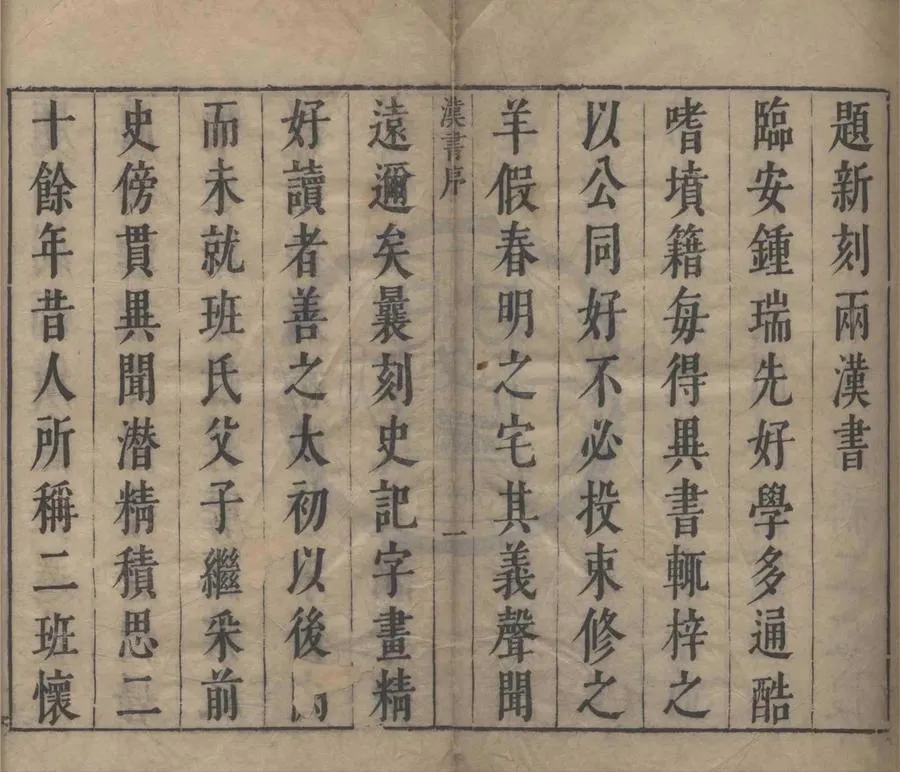 題新刻兩漢書
臨安鍾瑞先好學多通酷
嗜墳籍每得異書輒梓之
以公同好不必投束修之
羊假春明之宅其義聲聞
漢書序
一
遠邇矣曩刻史記字畫精
好讀者善之太初以後
而未就班氏父子繼采前
史傍貫異聞潛精積思二
十餘年昔人所稱二班懷